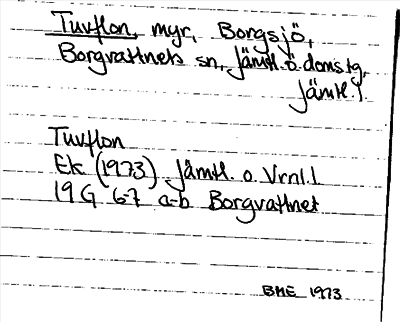 Tuvflon, myr, Borgsjö,
Borgvattnets sn, Jämtl. ö. doms.tg,
Jämtl. l.
Tuvflon
Ek (1973) Jämtl. o. Vrnl. l
19 G 6-7 a-b Borgvattnet
BME 1973